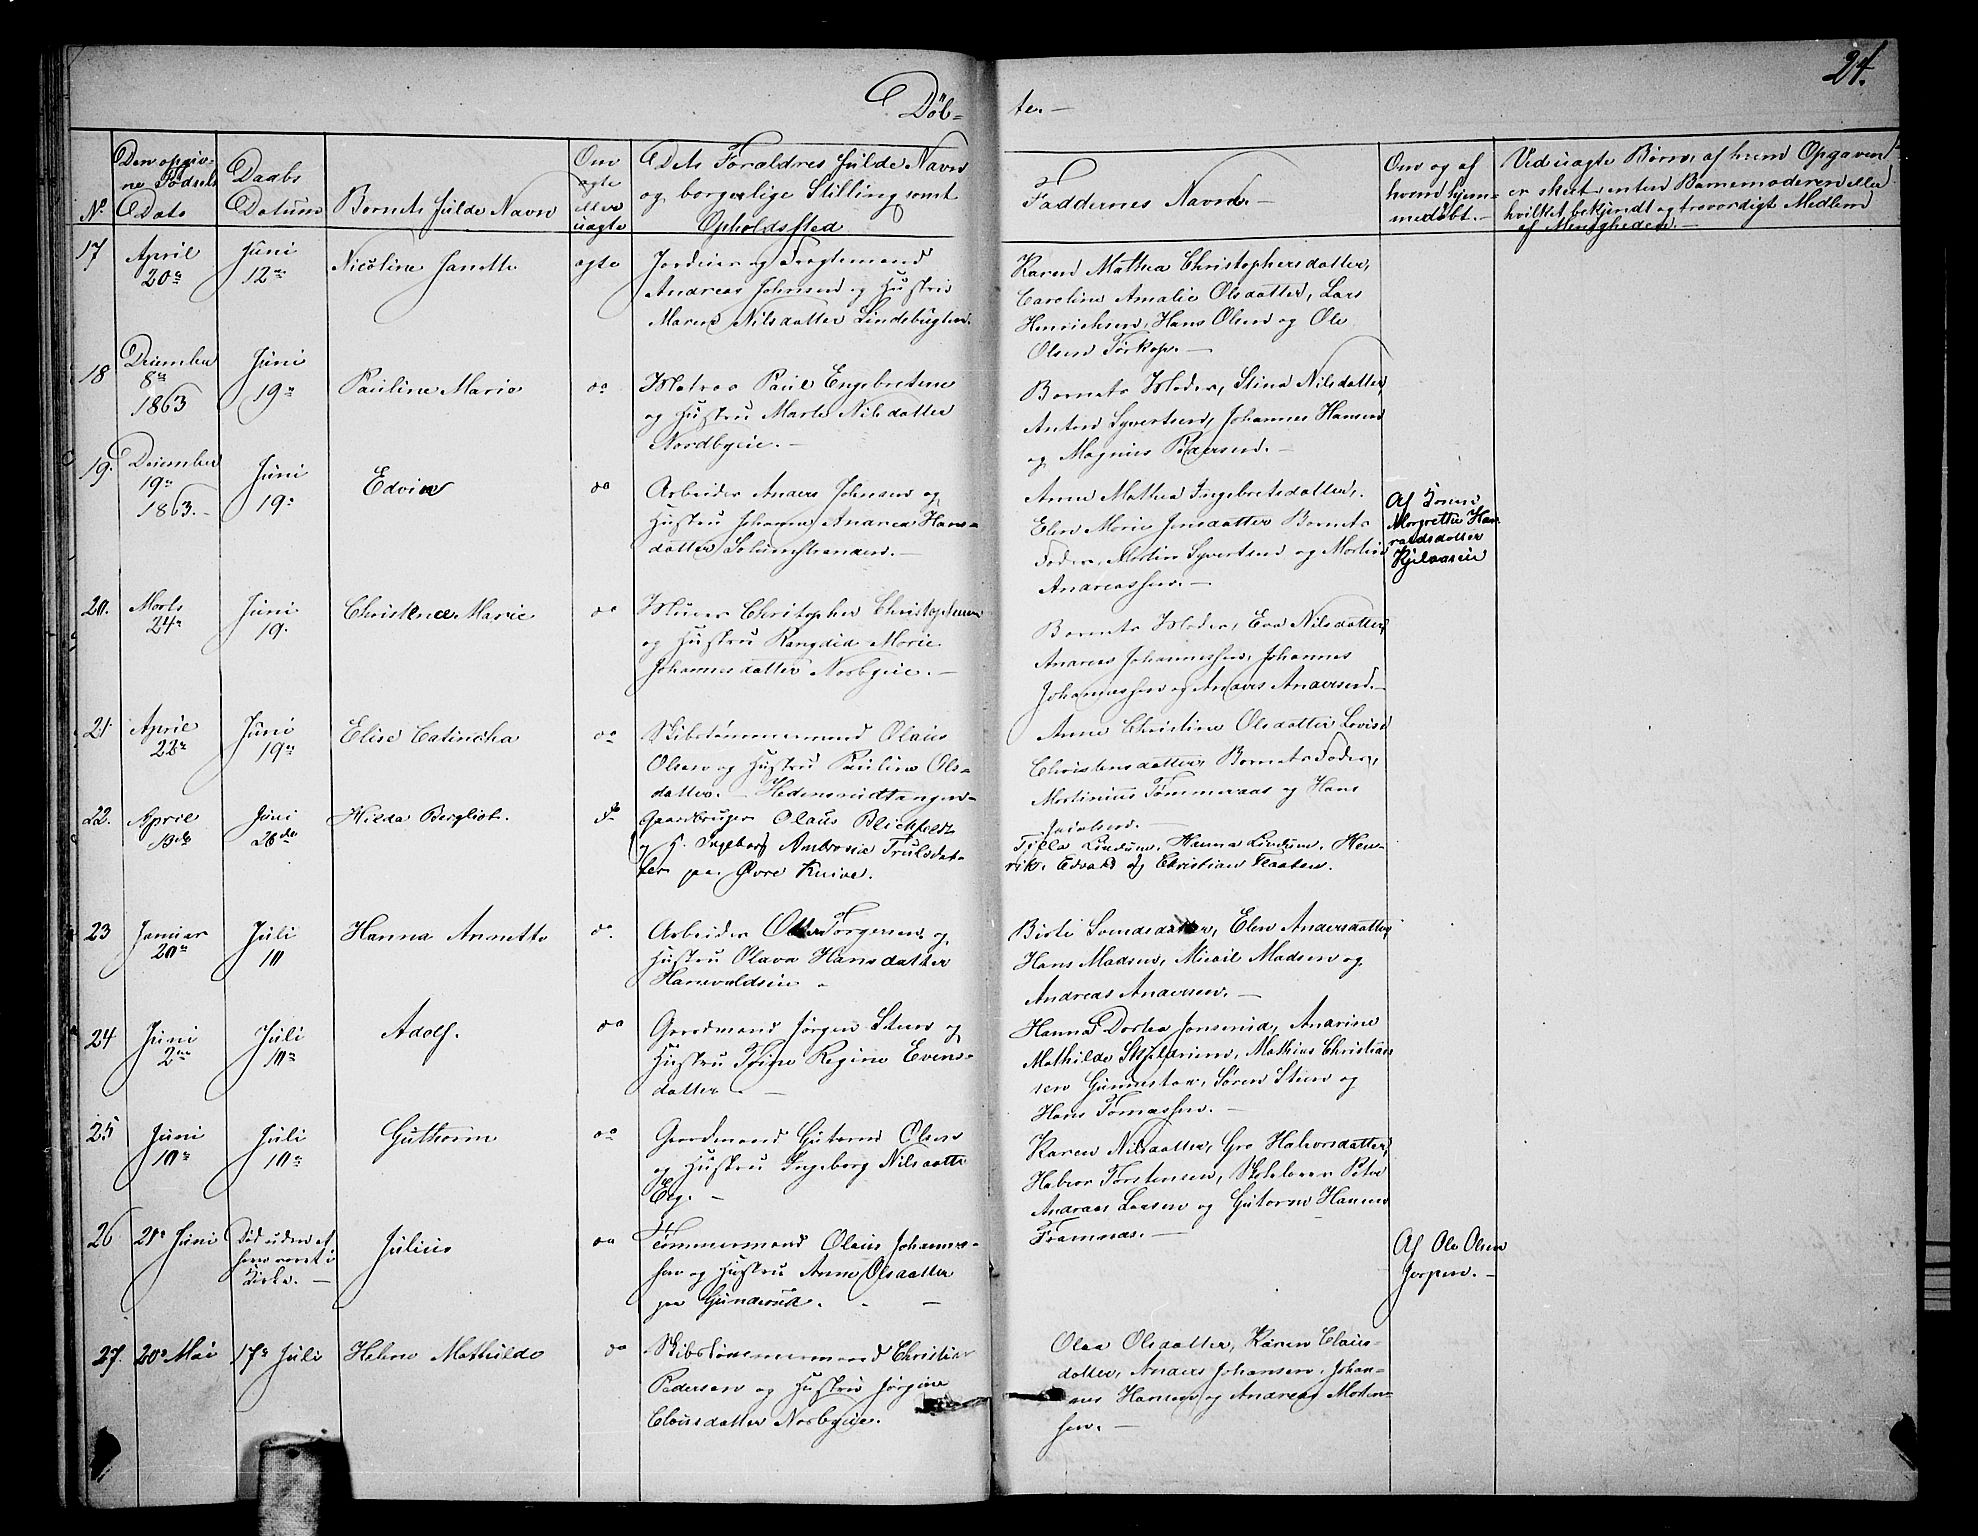 24.
Döb-
te.-
No
Den opgiv-
ne Födsels
Dato
Daabs
Datum
Barnets fulde Navn
Om
ægte
eller
uægte
Dets Forældres fulde Navn
og borgerlige Stilling samt
Opholdssted
Faddernes Navne.-
Om og af
hvem hjem-
medöbt.-
Ved uægte Börn, af hvem Opgaven
er skeet, enten Barnemoderen eller
hvilket bekjendt og troværdigt Medlem
af Menigheden.-
17
April
20de
Juni
12te
Nicoline Janette
ægte
Jordeier og Fragtemand
Andreas Johnsen og Hustru
Maren Nilsdatter Lindebugten.
Karen Mathea Christophersdatter,
Caroline Amalie Olsdatter, Lars
Henrichsen, Hans Olsen og Ole
Olsen Törkop.-
18
December
8de
1863
Juni
19de
Pauline Marie
do
Matros Paul Engebretsen
og Hustru Marte Nilsdatter
Nordbyeie.-
Barnets Moder, Stina Nilsdatter,
Anton Syvertsen, Johannes Hansen
og Magnus Pedersen.-
19.
December
19de
1863.-
Juni
19de
Edvin
do
Arbeider Anders Johnsen og
Hustru Johanne Andrea Hans-
datter Solumstranden.-
Anne Mathea Ingebretsdatter,
Elen Marie Jensdatter Barnets
Fader, Martin Syvertsen og Martin
Andreassen.-
Af
Margrethe Har-
raldsdatter
Kjelaaseie
20.
Marts
24de
Juni
19.
Christence Marie
do
Murer Christopher Christophersen
og Hustru Rangdid Marie
Johannesdatter Norbyeie.-
Barnets Moder, Eva Nilsdatter,
Andreas Johannessen, Johannes
Johannessen og Anders Andersen.-
21.
April
22de
Juni
19de
Elise Catincha
do
Skibstömmermand Olaus
Olsen og Hustru Pauline Ols-
datter.- Hedensrudtangen-
Anne Christine Olsdatter Lovise
Christensdatter, Barnets Fader,
Martinius Tömmeraas og Hans
Jacobsen.-
22.
April
19de
Juni
26de
Hilda Bergliot.
do
Gaardbruger Olaus Blichfeldt
og H. Ingeborg Ambrosia Trulsdat-
ter paa Övre Knive.
Tilla Lindum, Hanna Lindum, Hen-
rik. Edvard og Christian Flaaten.
23
Januar
20de
Juli
10
Hanna Annette
do.
Arbeider Otto Torgersen og
Hustru Olava Hansdatter
Haraldseie.
Birte Svendsdatter, Elen Andersdatter,
Hans Madsen, Micail Madsen og
Andreas Andersen.-
24
Juni
2den
Juli
10de
Adolf.
do
Gaardmand Jörgen Steen og
Hustru Trine Regine Evens-
datter.-
Hanna Dortea Jonsrud, Anarine
Mathilde Skjeldrum, Mathias Christian-
sen Gunnestad, Sören Steen og
Hans Tomassen.-
25
Juni
10de
Juli
10de
Guthorm
do
Gaardmand Gutorm Olsen
og Hustru Ingeborg Nilsdatter
Eeg.-
Karen Nilsdatter, Gro Halvorsdatter,
Halvor Torstensen, Skolelærer Peter
Andreas Larsen og Gutorm Hansen
Framnæs.-
26
21de Juni
Död uden at
have været i
Kirke.-
Julius
do
Tömmermand Olaus Johannes-
sen og Hustru Anne Olsdatter
paa Gunderud.-
Af Ole Olsen
Jerpen.-
27.
20de Mai
17de Juli
Helene Mathilde
do
Skibstömmermand Christian
Pedersen og Hustru Jörgine
Clausdatter Norbyeie.
Olea Olsdatter, Karen Claus-
datter, Anders Johansen, Johan-
nes Hansen og Andreas Morten-
sen.-